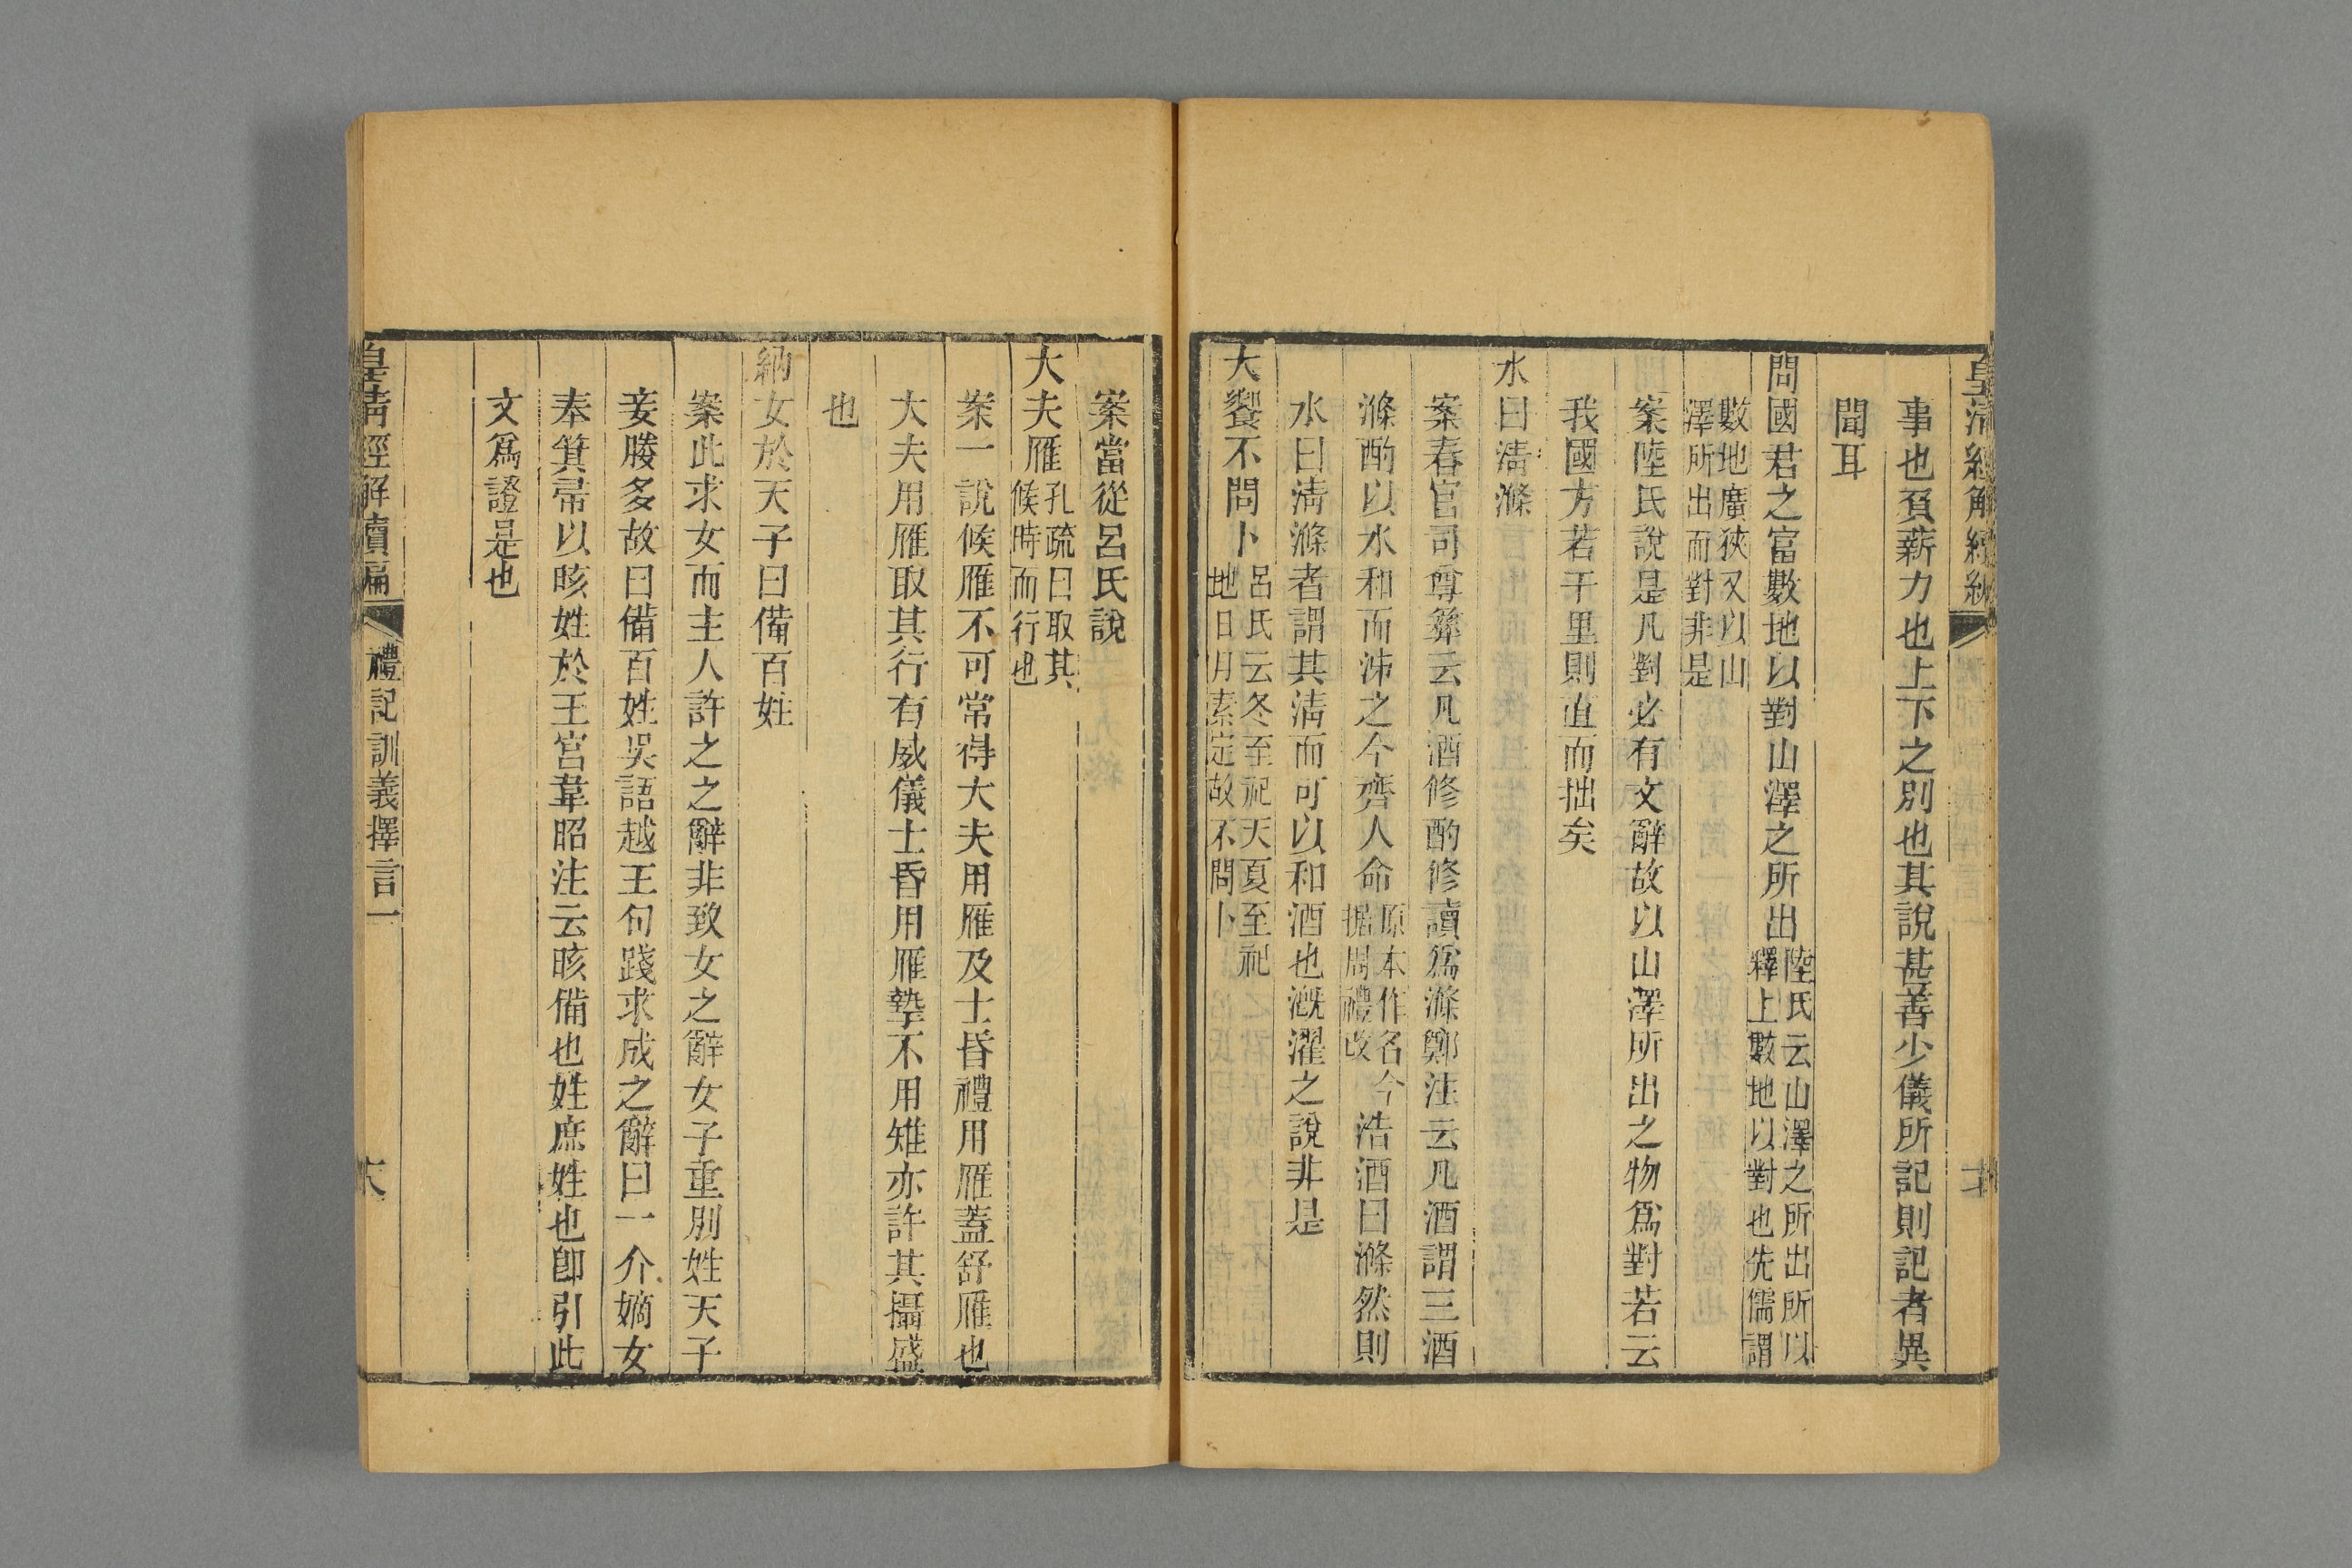 事也負薪力也上下之別也其說甚善少儀所記則記者異
聞耳
問國君之富數地以對山澤之所出陸氏云山澤之所出所以釋上數地以對也先儒謂
數地廣狹又以山澤所出而對非是
案陸氏說是凡對必有文辭故以山澤所出之物爲對若云
我國方若干里則直而拙矣
水曰清滌
案春官司尊彝云凡酒修酌修讀爲滌鄭注云凡酒謂三酒
滌酌以水和而泲之今齊人命原本作名今據周禮改浩酒曰滌然則
水曰清滌者謂其清而可以和酒也溉濯之說非是
大饗不問卜呂氏云冬至祀天夏至祀地日月素定故不問卜
案當從呂氏說
大夫雁孔疏曰取其候時而行也
案一說候雁不可常得大夫用雁及士昏禮用雁蓋舒雁也
大夫用雁取其行有威儀士昏用雁摯不用雉亦許其攝盛
也
納女於天子曰備百姓
案此求女而主人許之之辭非致女之辭女子重別姓天子
妾媵多故曰備百姓吳語越王句踐求成之辭曰一介嫡女
奉箕帚以晐姓於王宮韋昭注云晐備也姓庶姓也卽引此
文爲證是也
皇清經解續編 禮記訓義擇言一